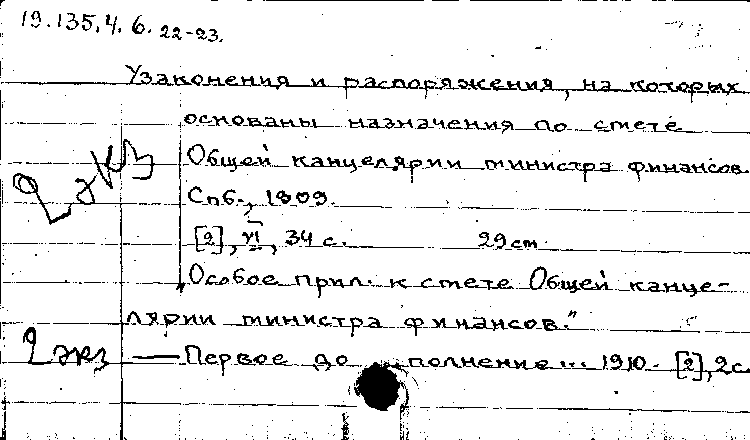 19.135.4.6. 22-23.
Узаконения и распоряжения, на которых
основаны назначения по смете
2 экз
Общей канцелярии министра финансов.
Спб., 1909.
[2], VI, 34 с. 29 см.
Особое прил. к смете Общей канце-
лярии министра финансов."
2 экз — Первое до полнение... 1910. [2], 2 с.